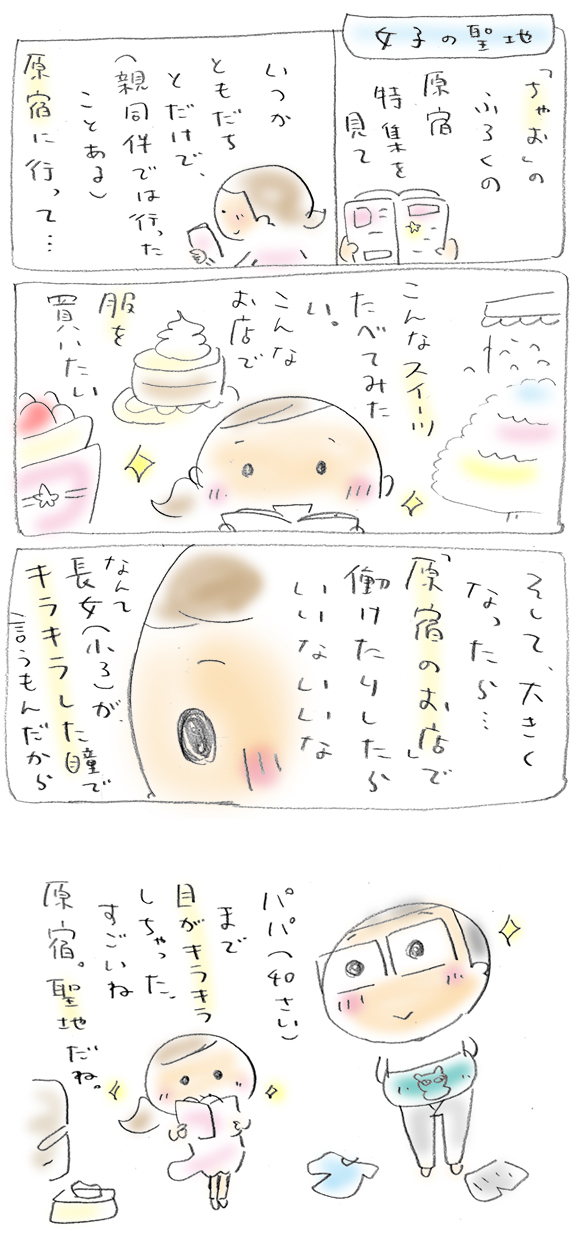 女子の聖地
「ちゃお」の
ふろくの
原宿
特集を
見て
いつか
ともだち
とだけで、
(親同伴では行った
ことある)
原宿に行って…
こんなスイーツ
たべてみた
い。
こんな
お店で
服を
買いたい
そして、大きく
なったら…
「原宿のお店」で
働けたりしたら
いいないいな
なんて
長女(小3)が、
キラキラした瞳で
言うもんだから
パパ(40さい)
まで
目がキラキラ
しちゃった、
すごいね
原宿。聖地だね。